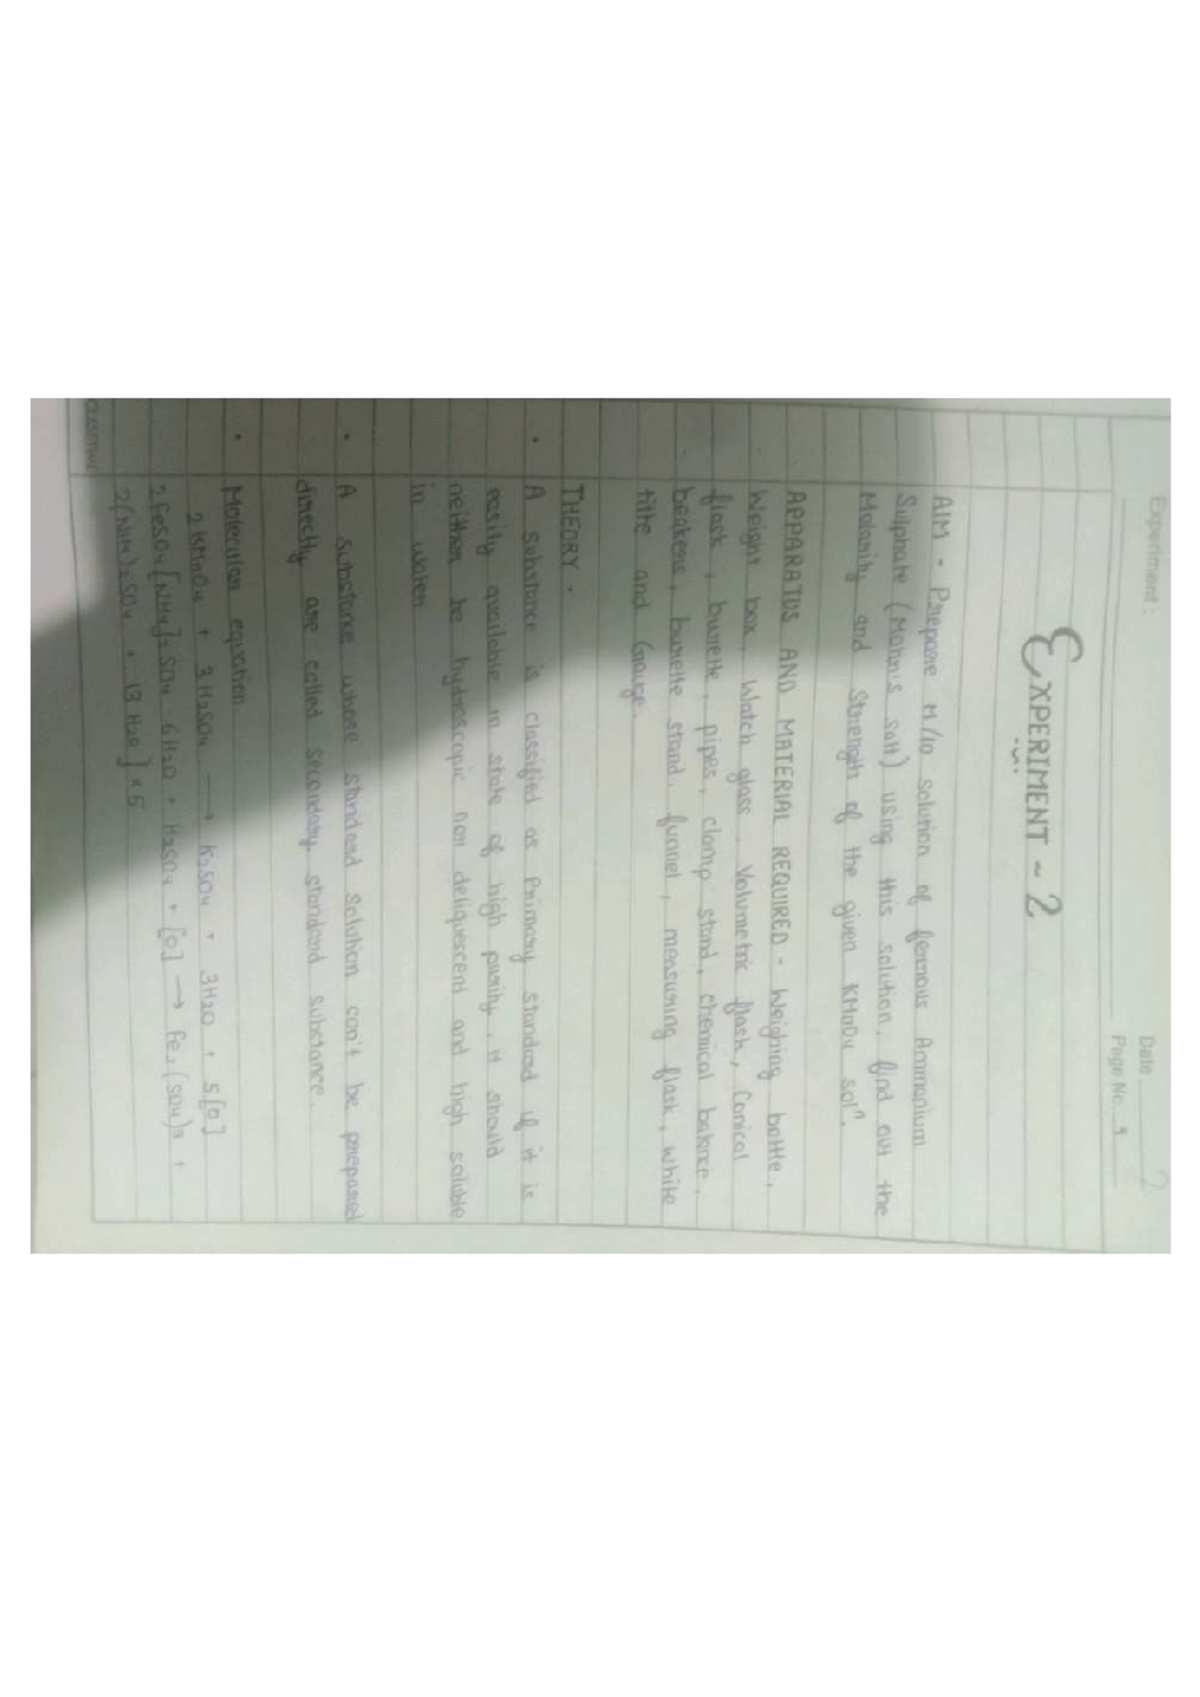 Experiment :
Date
Page No. 9
2
EXPERIMENT ~ 2
AIM - Prepare M/10 solution of ferrous Ammonium
Sulphate (Mohr's salt) using this solution, find out the
Molarity and Strength of the given KMnO4 solⁿ.
APPARATUS AND MATERIAL REQUIRED - Weighing bottle,
Weight box, Watch glass, Volumetric flask, Conical
flask, burette, pipes, clamp stand, chemical balance,
beakers, burette stand, funnel, mensuring flask, white
tithe and Gauge.
THEORY -
• A substance is classified as Primary standard if it is
easity available in state of high purity, it should
neither be hydroscopic nor deliquescent and high soluble
in water
• A substance whose standard solution can't be prepared
directly are called secondary standard substance.
• Molecular equation
2 KMnO4 + 3 H2SO4 → K2SO4 + 3H2O + 5[O]
2 FeSO4 [NH4]2 SO4 · 6H2O + H2SO4 + [O] → Fe2 (SO4)3 +
2(NH4)2SO4 + 13 H2O ] × 5